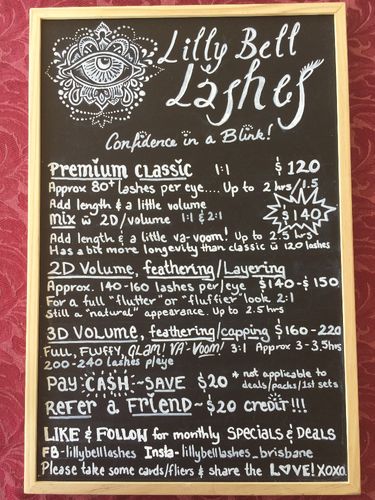 Lilly Bell
Lashes
Confidence in a Blink!
Premium Classic 1:1 $120
Approx 80+ lashes per eye.... Up to 2 hrs/1.5
Add length & a little volume
Mix w 2D/volume 1:1 & 2:1 $140
Add length & a little va-voom! Up to 2.5 hrs
Has a bit more longevity than classic w 120 lashes
2D Volume, feathering/Layering
Approx. 140-160 lashes per/eye $140-$150
For a full "flutter" or "fluffier" look 2:1
Still a "natural" appearance. Up to 2.5 hrs
3D VOLUME, feathering/capping $160-220
Full, Fluffy, GLAM! VA-Voom! 3:1 Approx 3-3.5hrs
200-240 lashes p/eye
Pay CASH-SAVE $20 * not applicable to
deals/packs/1st sets
Refer a FRIEND~$20 credit!!!
LIKE & FOLLOW for monthly SPECIALS & DEALS
FB-lillybelllashes Insta-lillybelllashes_brisbane
Please take some cards/fliers & share the LOVE! XOXO